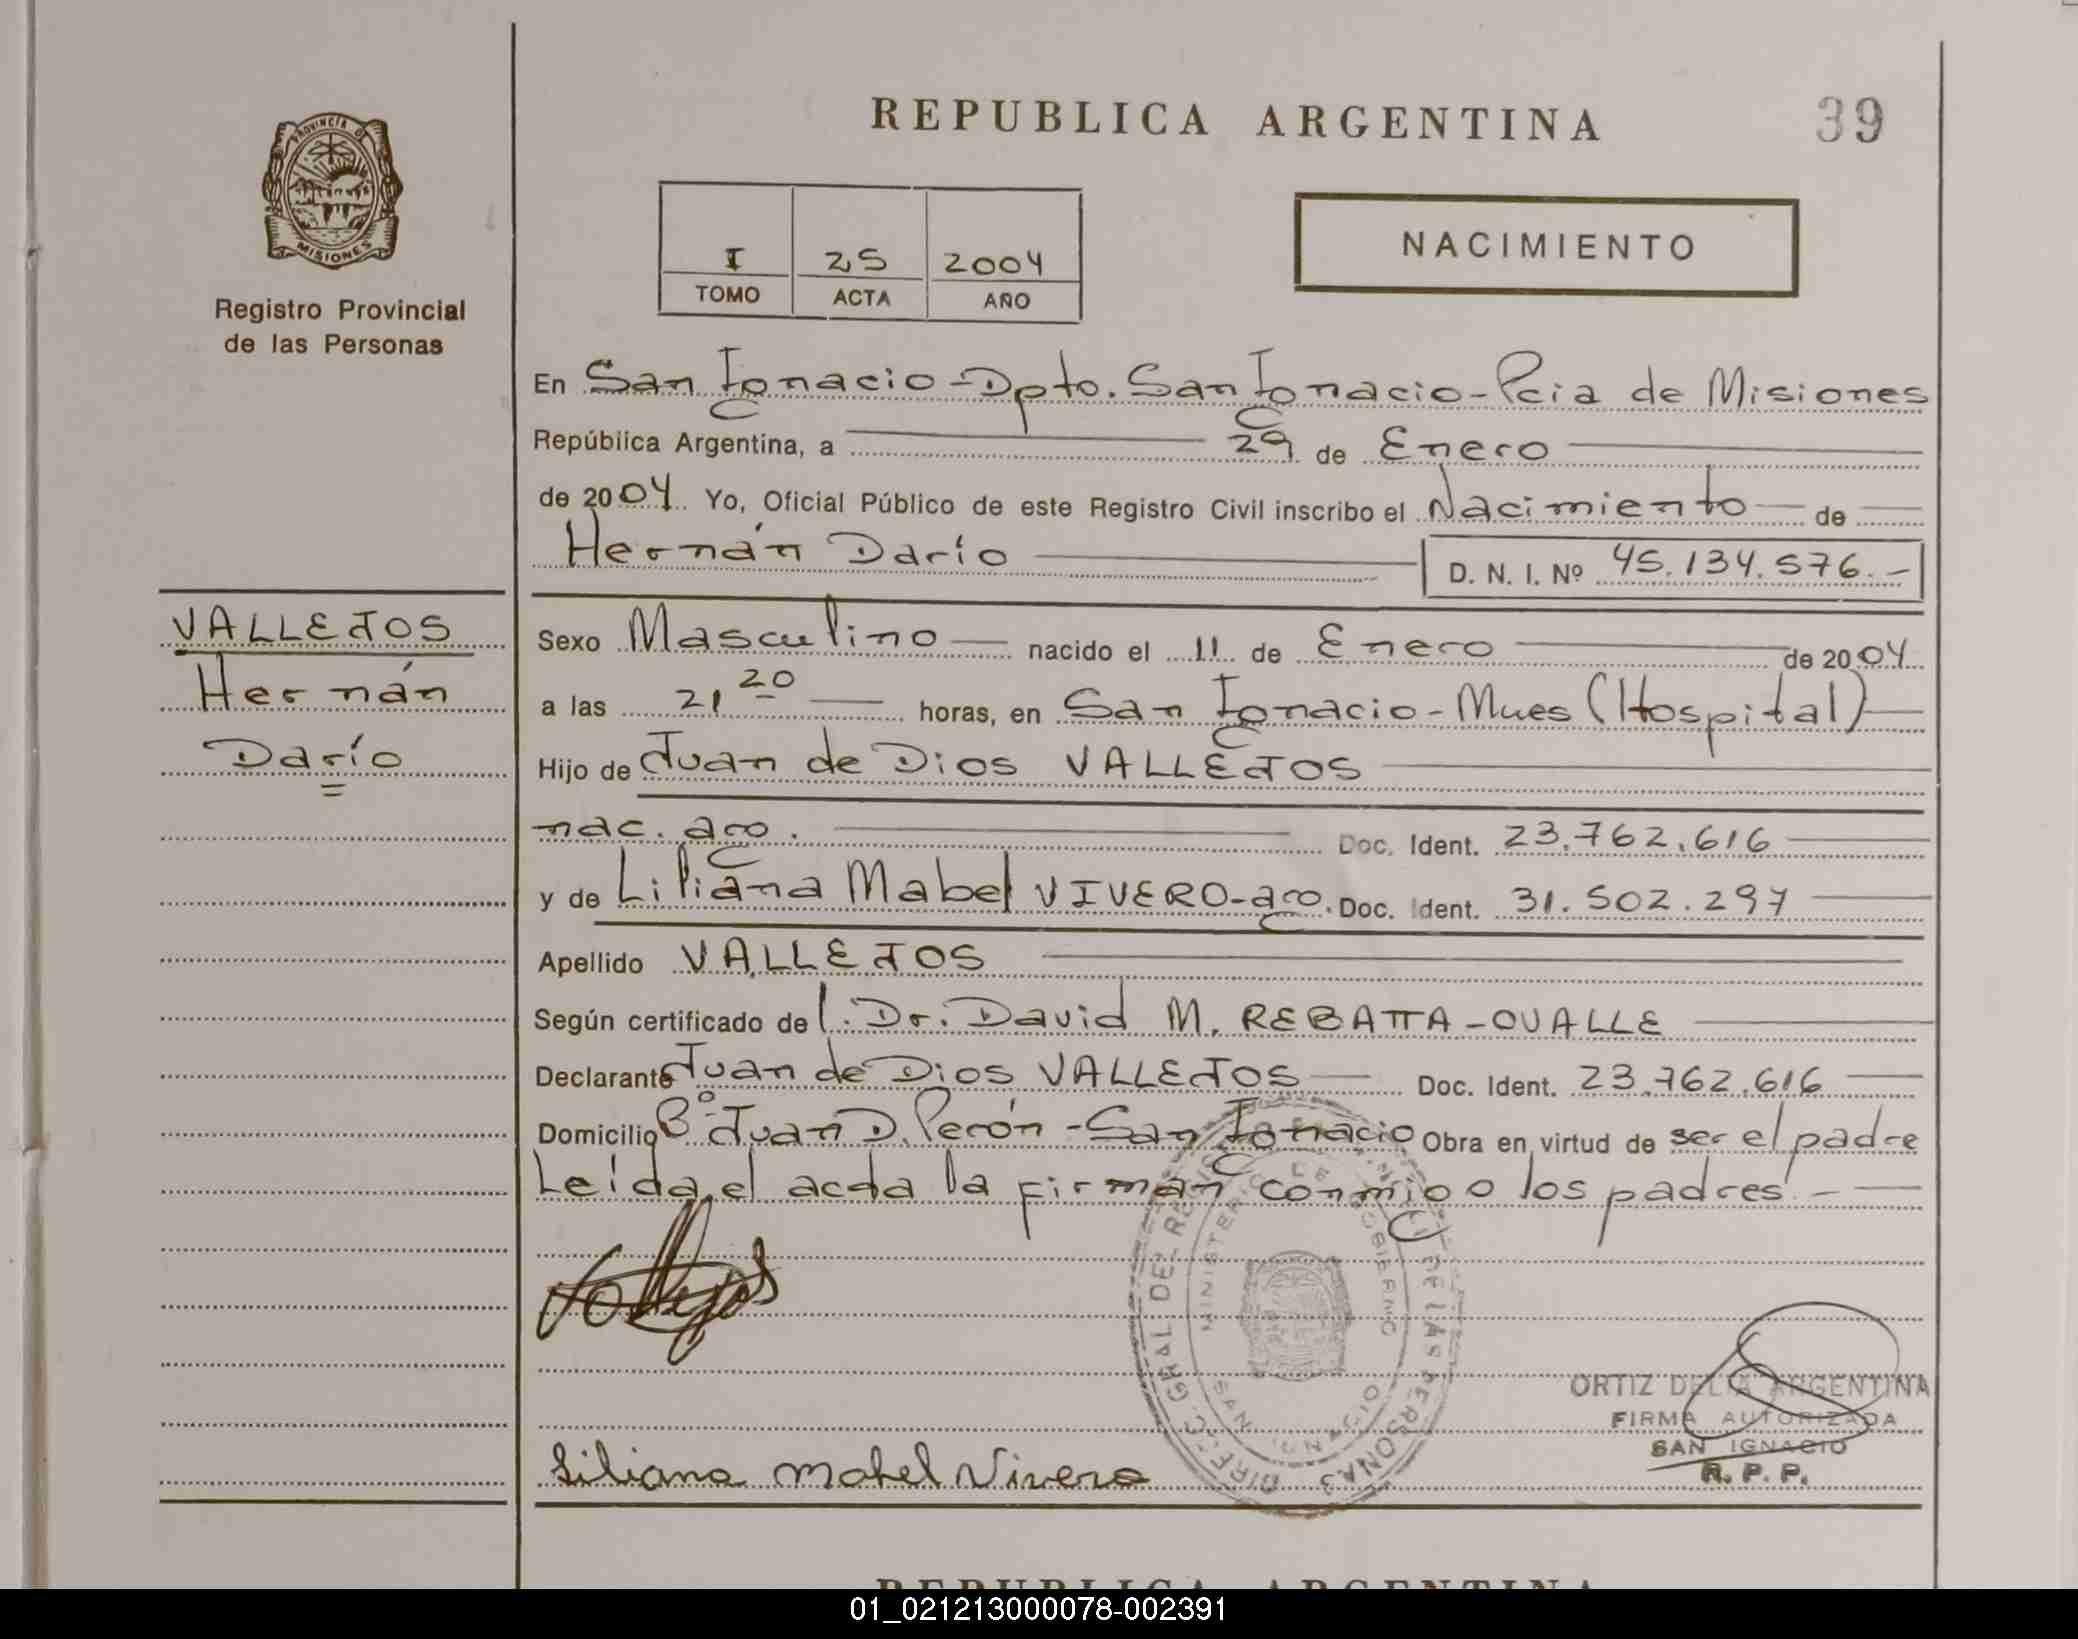 REPUBLICA ARGENTINA
39
PROVINCIA DE
MISIONES
Registro Provincial
de las Personas
I 25 2004
TOMO ACTA AÑO
NACIMIENTO
En San Ignacio - Dpto. San Ignacio - Pcia de Misiones
República Argentina, a 29 de Enero
de 2004. Yo, Oficial Público de este Registro Civil inscribo el Nacimiento de
Hernán Darío D. N. I. Nº 45.134.576.-
VALLEJOS
Hernán
Darío
Sexo Masculino nacido el 11 de Enero de 2004
a las 21 20 horas, en San Ignacio - Mnes (Hospital)
Hijo de Juan de Dios VALLEJOS
nac. arg. Doc. Ident. 23.762.616
y de Liliana Mabel VIVERO - arg. Doc. Ident. 31.502.297
Apellido VALLEJOS
Según certificado del. Dr. David M. REBATTA - OVALLE
Declarante Juan de Dios VALLEJOS Doc. Ident. 23.762.616
Domicilio Bº Juan D. Perón - San Ignacio Obra en virtud de ser el padre
Leída el acta la firman conmigo los padres.-
Vallejos
Liliana Mabel Vivero
DIREC. GRAL DEL REG. DE LAS PERSONAS
MINISTERIO DE GOBIERNO
SAN IGNACIO
ORTIZ DELIA ARGENTINA
FIRMA AUTORIZADA
SAN IGNACIO
R. P. P.
REPUBLICA ARGENTINA
01_021213000078-002391